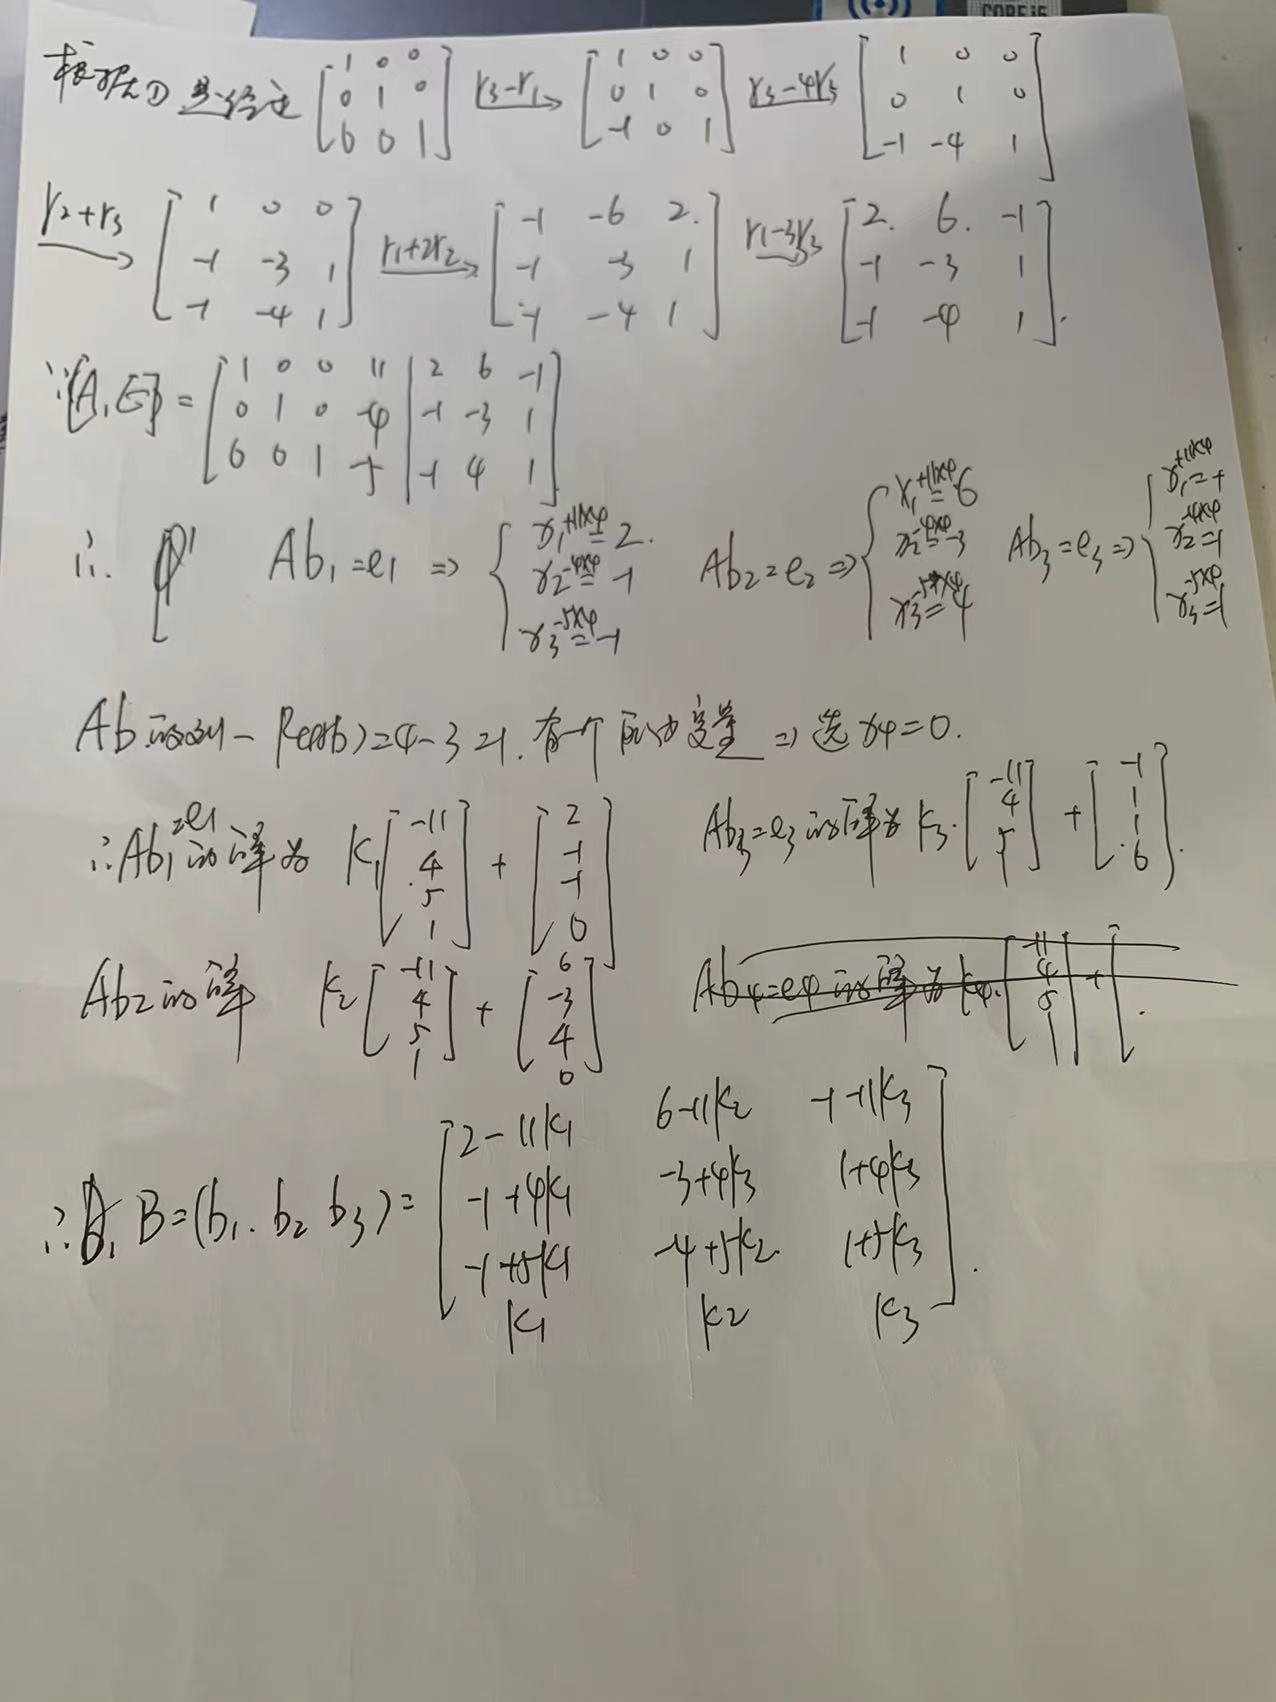 CORE i5
根据① 是经过 [1 0 0; 0 1 0; 0 0 1] r3-r1→ [1 0 0; 0 1 0; -1 0 1] r3-4r3→ [1 0 0; 0 1 0; -1 -4 1]
r2+r3→ [1 0 0; -1 -3 1; -1 -4 1] r1+2r2→ [-1 -6 2.; -1 -3 1; -1 -4 1] r1-3r3→ [2. 6. -1; -1 -3 1; -1 -4 1].
∵[A,E] = [1 0 0 11 | 2 6 -1; 0 1 0 -4 | -1 -3 1; 0 0 1 -5 | -1 4 1]
∴ Ab1=e1 => { x1+11x4=2. x2-4x4=-1 x3-5x4=-1 Ab2=e2 => { x1+11x4=6 x2-4x4=-3 x3-5x4=4 Ab3=e3 => { x1+11x4=-1 x2-4x4=1 x3-5x4=1
Ab的列-R(Ab)=4-3=1. 有一个自由变量 => 选x4=0.
∴Ab1=e1的解为 k1[-11; 4; 5; 1] + [2; -1; -1; 0] Ab3=e3的解为 k3.[-11; 4; 5; 1] + [-1; 1; 1; 0].
Ab2的解 k2[-11; 4; 5; 1] + [6; -3; 4; 0] Ab4=e4的解为k4.[-11; 4; 5; 1] + [
∴ B=(b1. b2 b3)= [2-11k1 6-11k2 -1-11k3; -1+4k1 -3+4k3 1+4k3; -1+5k1 -4+5k2. 1+5k3; k1 k2 k3].